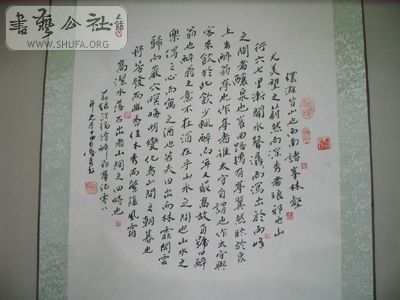 書藝公社
WWW.SHUFA.ORG
環滁皆山也西南諸峯林壑
尤美望之蔚然而深秀者琅琊也山
行六七里漸聞水聲潺而瀉出於兩峰
之間者釀泉也峯回路轉有亭翼然臨於泉
上者醉翁亭也作亭者誰太守自謂也太守與
客來飲於此飲少輒醉而年又最高故自號曰醉
翁也醉翁之意不在酒在乎山水之間也山水之
樂得之心而寓之酒也若夫日出而林霏開雲
歸而巖穴暝晦明變化者山間之朝暮也
野芳發而幽香佳木秀而繁陰風霜
高潔水落石出者山間之四時也
節錄歐陽脩醉翁亭記